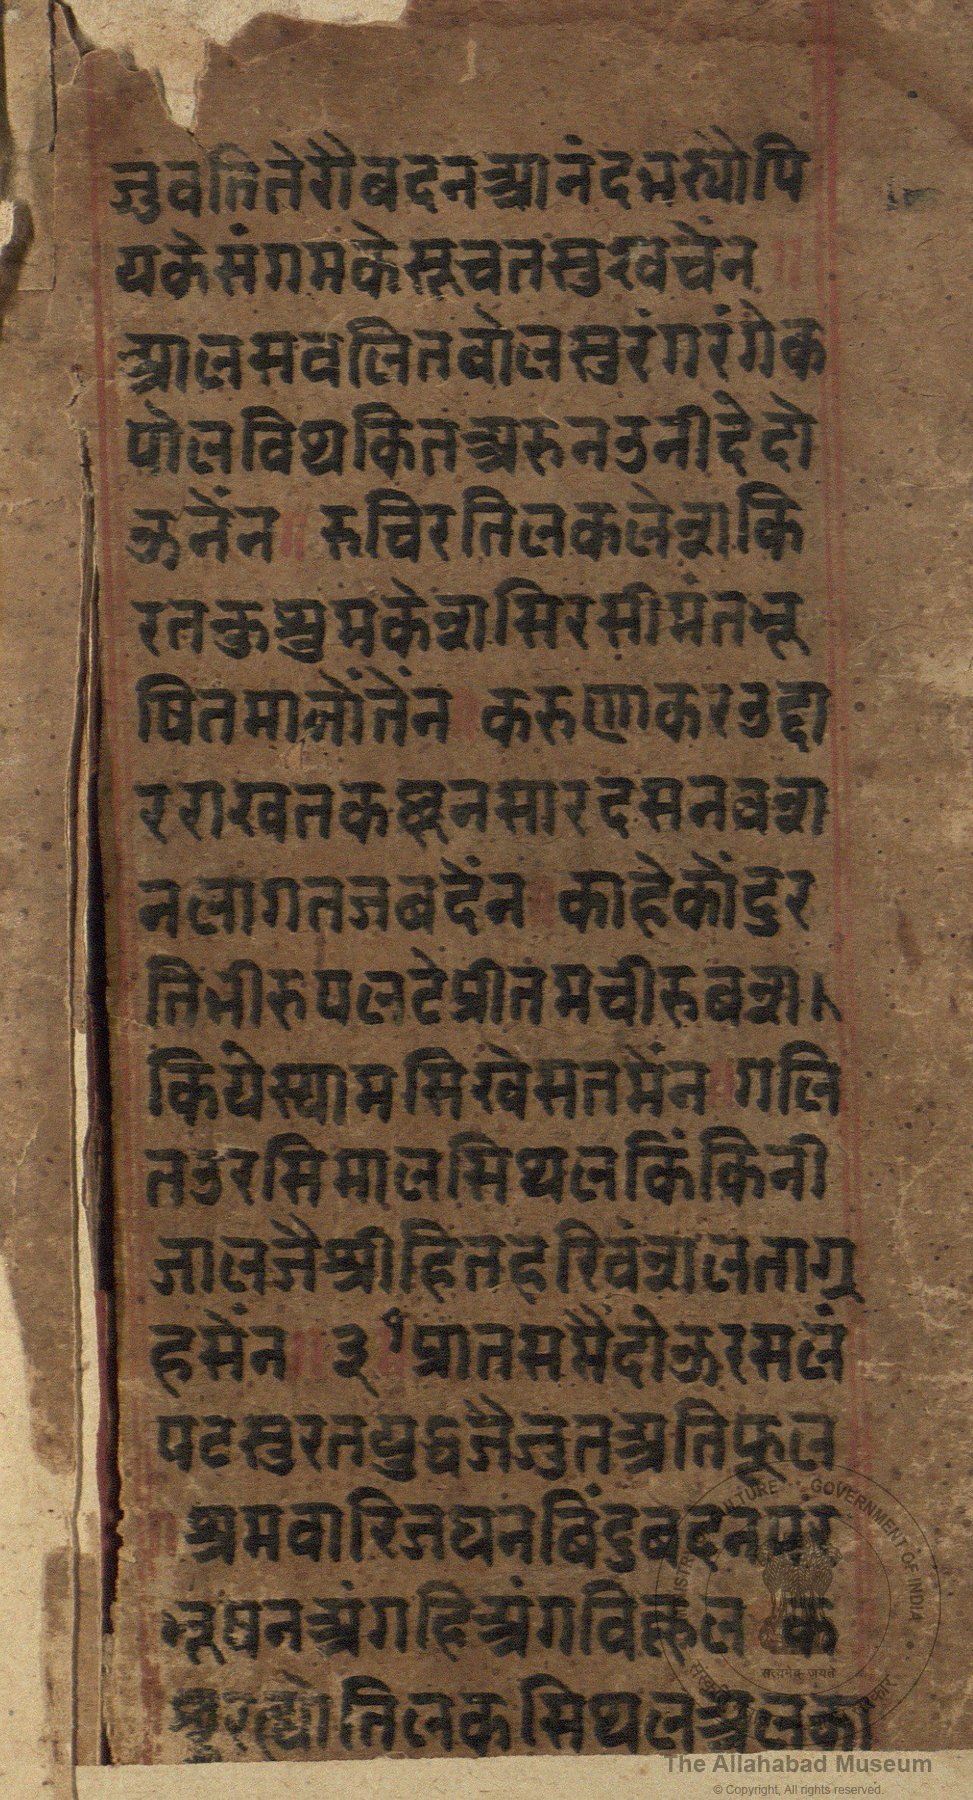 जुवतितेरौबदनआनंदभर्यौपि
यकेसंगमकेसूचतसुखचैंन ॥
आलसवलितवोलसुरंगरंगेक
पोलविथकितअरुनउनींदेदो
ऊनैंन ॥ रुचिरतिलकलेशकि
रतकुसुमकेशसिरसीमंतभू
षितमानौंतैंन ॥ करुणाकरउदा
रराखतकछूनसारदसनवश
नलागतजबदैंन ॥ काहेकौंदुर
तिभीरुपलटेप्रीतमचीरुबश।
कियेस्यामसिखेसतमैंन ॥ गलि
तउरसिमालसिथलकिंकिनी
जालजैश्रीहितहरिवंशलतागृ
हसैंन ॥ ३ प्रातसमैदोऊरसलं
पटसुरतयुद्धजैजुतअतिफूल
॥ श्रमवारिजघनबिंदुबदनपर
भूषनअंगहिअंगविकूल ॥ क
छुरह्योतिलकसिथलअलका
The Allahabad Museum
© Copyright, All rights reserved.